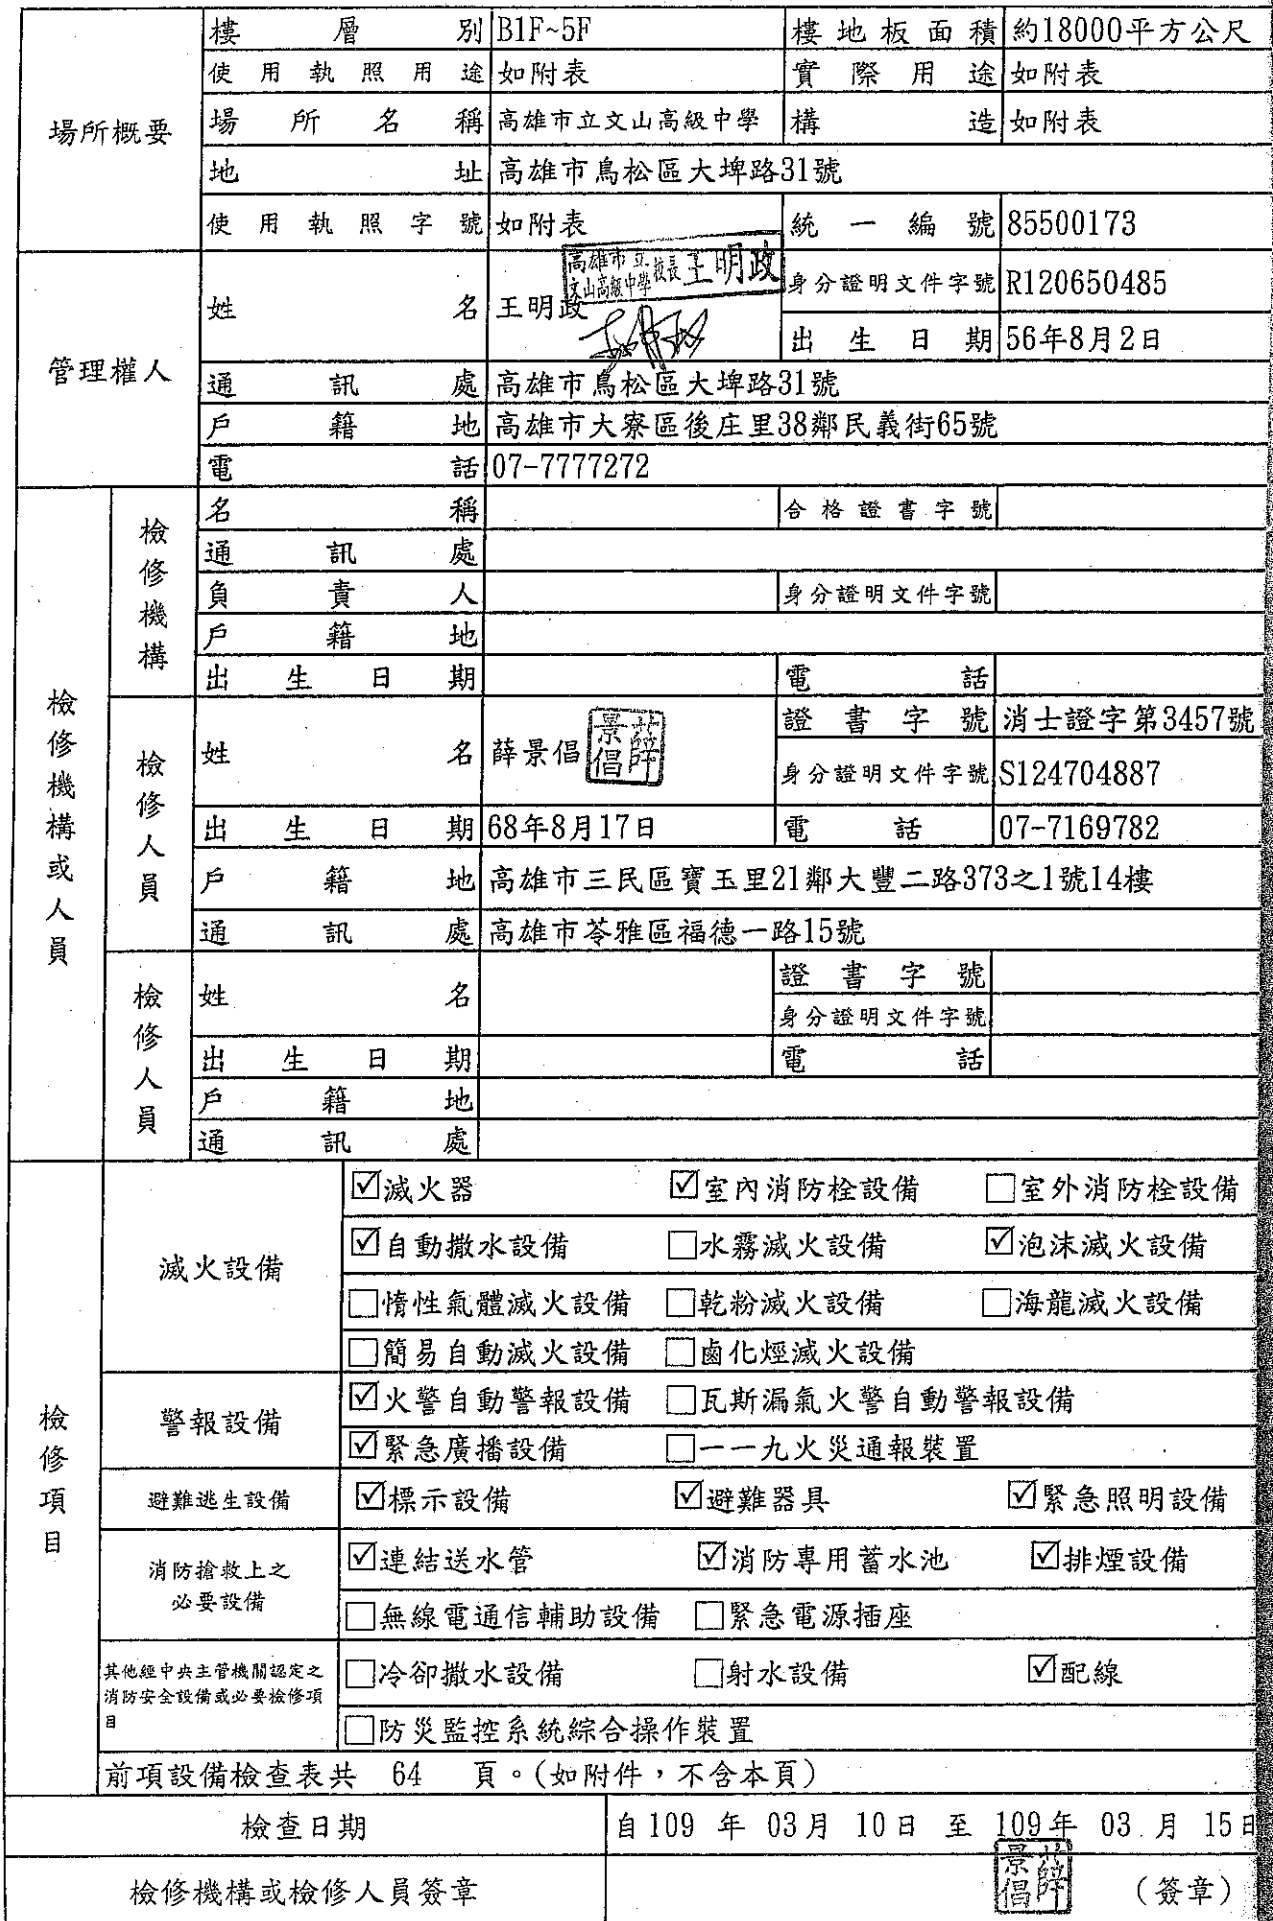 場所概要
樓層別 B1F~5F 樓地板面積 約18000平方公尺
使用執照用途 如附表 實際用途 如附表
場所名稱 高雄市立文山高級中學 構造 如附表
地址 高雄市鳥松區大埤路31號
使用執照字號 如附表 統一編號 85500173
管理權人
姓名 王明政
高雄市立文山高級中學校長王明政
身分證明文件字號 R120650485
出生日期 56年8月2日
通訊處 高雄市鳥松區大埤路31號
戶籍地 高雄市大寮區後庄里38鄰民義街65號
電話 07-7777272
檢修機構或人員
檢修機構
名稱 合格證書字號
通訊處
負責人 身分證明文件字號
戶籍地
出生日期 電話
檢修人員
姓名 薛景倡 薛景倡
證書字號 消士證字第3457號
身分證明文件字號 S124704887
出生日期 68年8月17日 電話 07-7169782
戶籍地 高雄市三民區寶玉里21鄰大豐二路373之1號14樓
通訊處 高雄市苓雅區福德一路15號
檢修人員
姓名 證書字號
身分證明文件字號
出生日期 電話
戶籍地
通訊處
檢修項目
滅火設備
☑滅火器 ☑室內消防栓設備 □室外消防栓設備
☑自動撒水設備 □水霧滅火設備 ☑泡沫滅火設備
□惰性氣體滅火設備 □乾粉滅火設備 □海龍滅火設備
□簡易自動滅火設備 □鹵化烴滅火設備
警報設備
☑火警自動警報設備 □瓦斯漏氣火警自動警報設備
☑緊急廣播設備 □一一九火災通報裝置
避難逃生設備 ☑標示設備 ☑避難器具 ☑緊急照明設備
消防搶救上之
必要設備
☑連結送水管 ☑消防專用蓄水池 ☑排煙設備
□無線電通信輔助設備 □緊急電源插座
其他經中央主管機關認定之
消防安全設備或必要檢修項
目
□冷卻撒水設備 □射水設備 ☑配線
□防災監控系統綜合操作裝置
前項設備檢查表共 64 頁。(如附件,不含本頁)
檢查日期 自109 年 03月 10日 至 109年 03 月 15日
檢修機構或檢修人員簽章 薛景倡 (簽章)